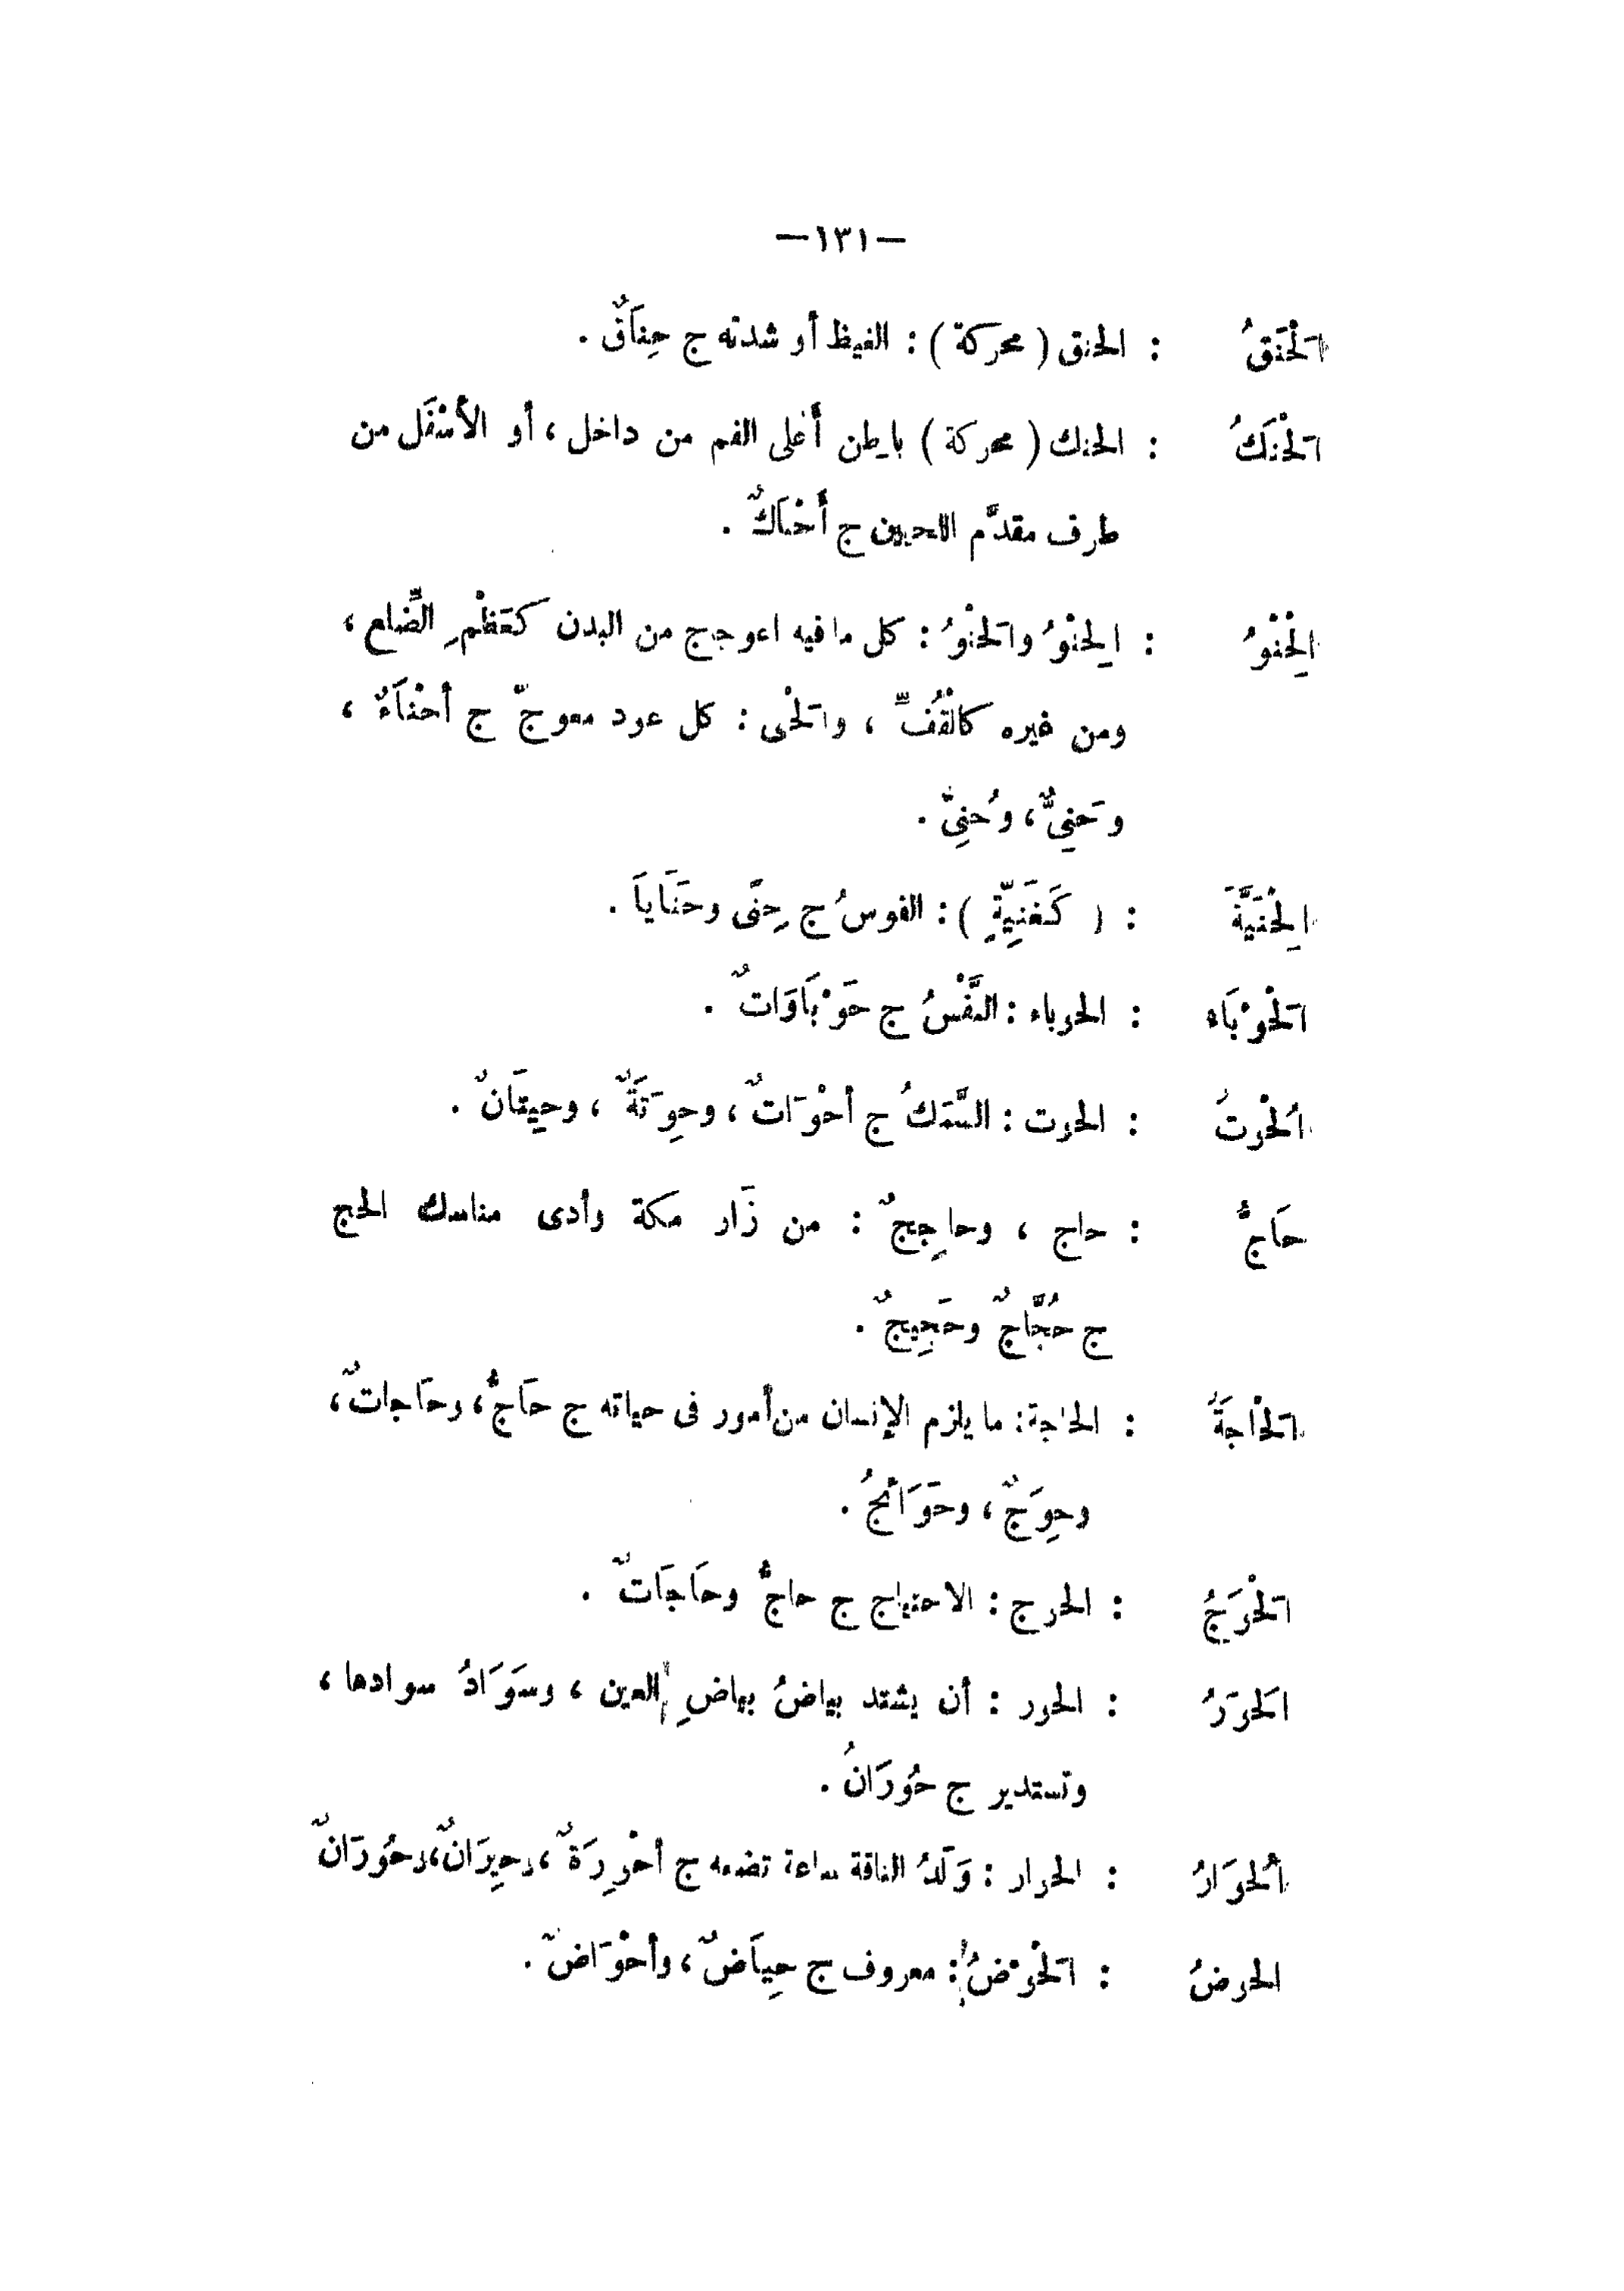 —١٣١—
اَلْحَنَقُ : الحنق (محركة) : الغيظ أو شدته ج حِنَاقٌ .
اَلْحَنَكُ : الحنك (محركة) باطن أَعلى الفم من داخل ، أو الأَسْفَل من
طرف مقدَّم اللحيين ج أَحْنَاكٌ .
اِلْحِنْوُ : اِلحِنْوُ واَلحَنْوُ : كل ما فيه اعوجج من البدن كعَظْمِ الضِّلع ،
ومن غيره كالْقُفِّ ، واَلحْى : كل عود معوجّ ج أحْنَاَءٌ ،
وَحَنِىٌّ ، وحُنِىّ .
اِلْحَنِيَّةَ : (كَغَنِيّةٍ) : القوسُ ج حِنًى وحَنَاياَ .
اَلْحَوْبَاء : الحوباء : النَّفْسُ ج حَوْبَاَوَاتٌ .
اُلْحُوتُ : الحوت : السَّمَكُ ج أحْوَاتٌ ، وحِوَتَةٌ ، وحِيتَانٌ .
حَاجٌّ : حاج ، وحاجِجٌ : من زَار مكة وأدى مناسك الحج
ج حُجَّاجٌ وحَجِيجٌ .
اَلْحَاجَةُ : الحاجة : ما يلزم الإنسان من أمور فى حياته ج حَاجٌّ ، وحَاجاتٌ ،
وحِوَجٌ ، وحَوَائجُ .
اَلْحَوَجُ : الحوج : الاحتياج ج حاجٌّ وحَاجَاتٌ .
اَلحَوَرُ : الحور : أن يشتد بياضُ بياضِ العين ، وسَوَادُ سوادها ،
وتستدير ج حُورَانُ .
اُلحُوَارُ : الحوار : وَلَدُ الناقة ساعة تضعه ج أحْوِرَةٌ ، وحِيرَانٌ ، وحُورَانٌ
الحوضُ : اَلْحَوْضُ : معروف ج حِيَاضٌ ، وأحْوَاضٌ .